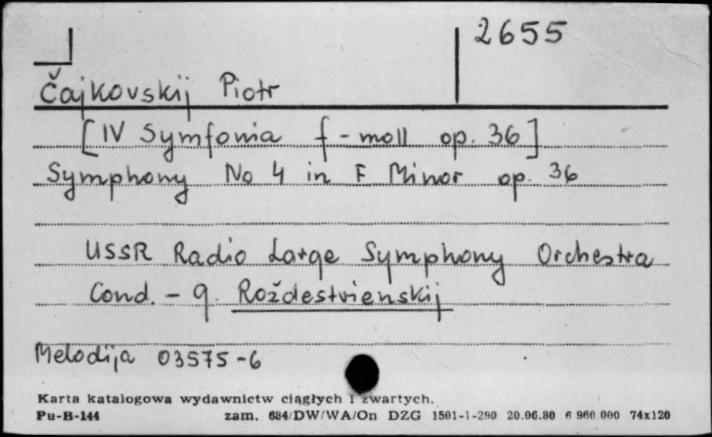 2655
Čajkovskij Piotr
[IV Symfonia f-moll op. 36]
Symphony No 4 in F Minor op. 36
USSR Radio Large Symphony Orchestra
Cond. - G. Roždestvienskij
Melodija 03575-6
Karta katalogowa wydawnictw ciągłych i zwartych.
Pu-B-144 zam. 684/DW/WA/On DZG 1501-1-290 20.06.80 6 960 000 74x120